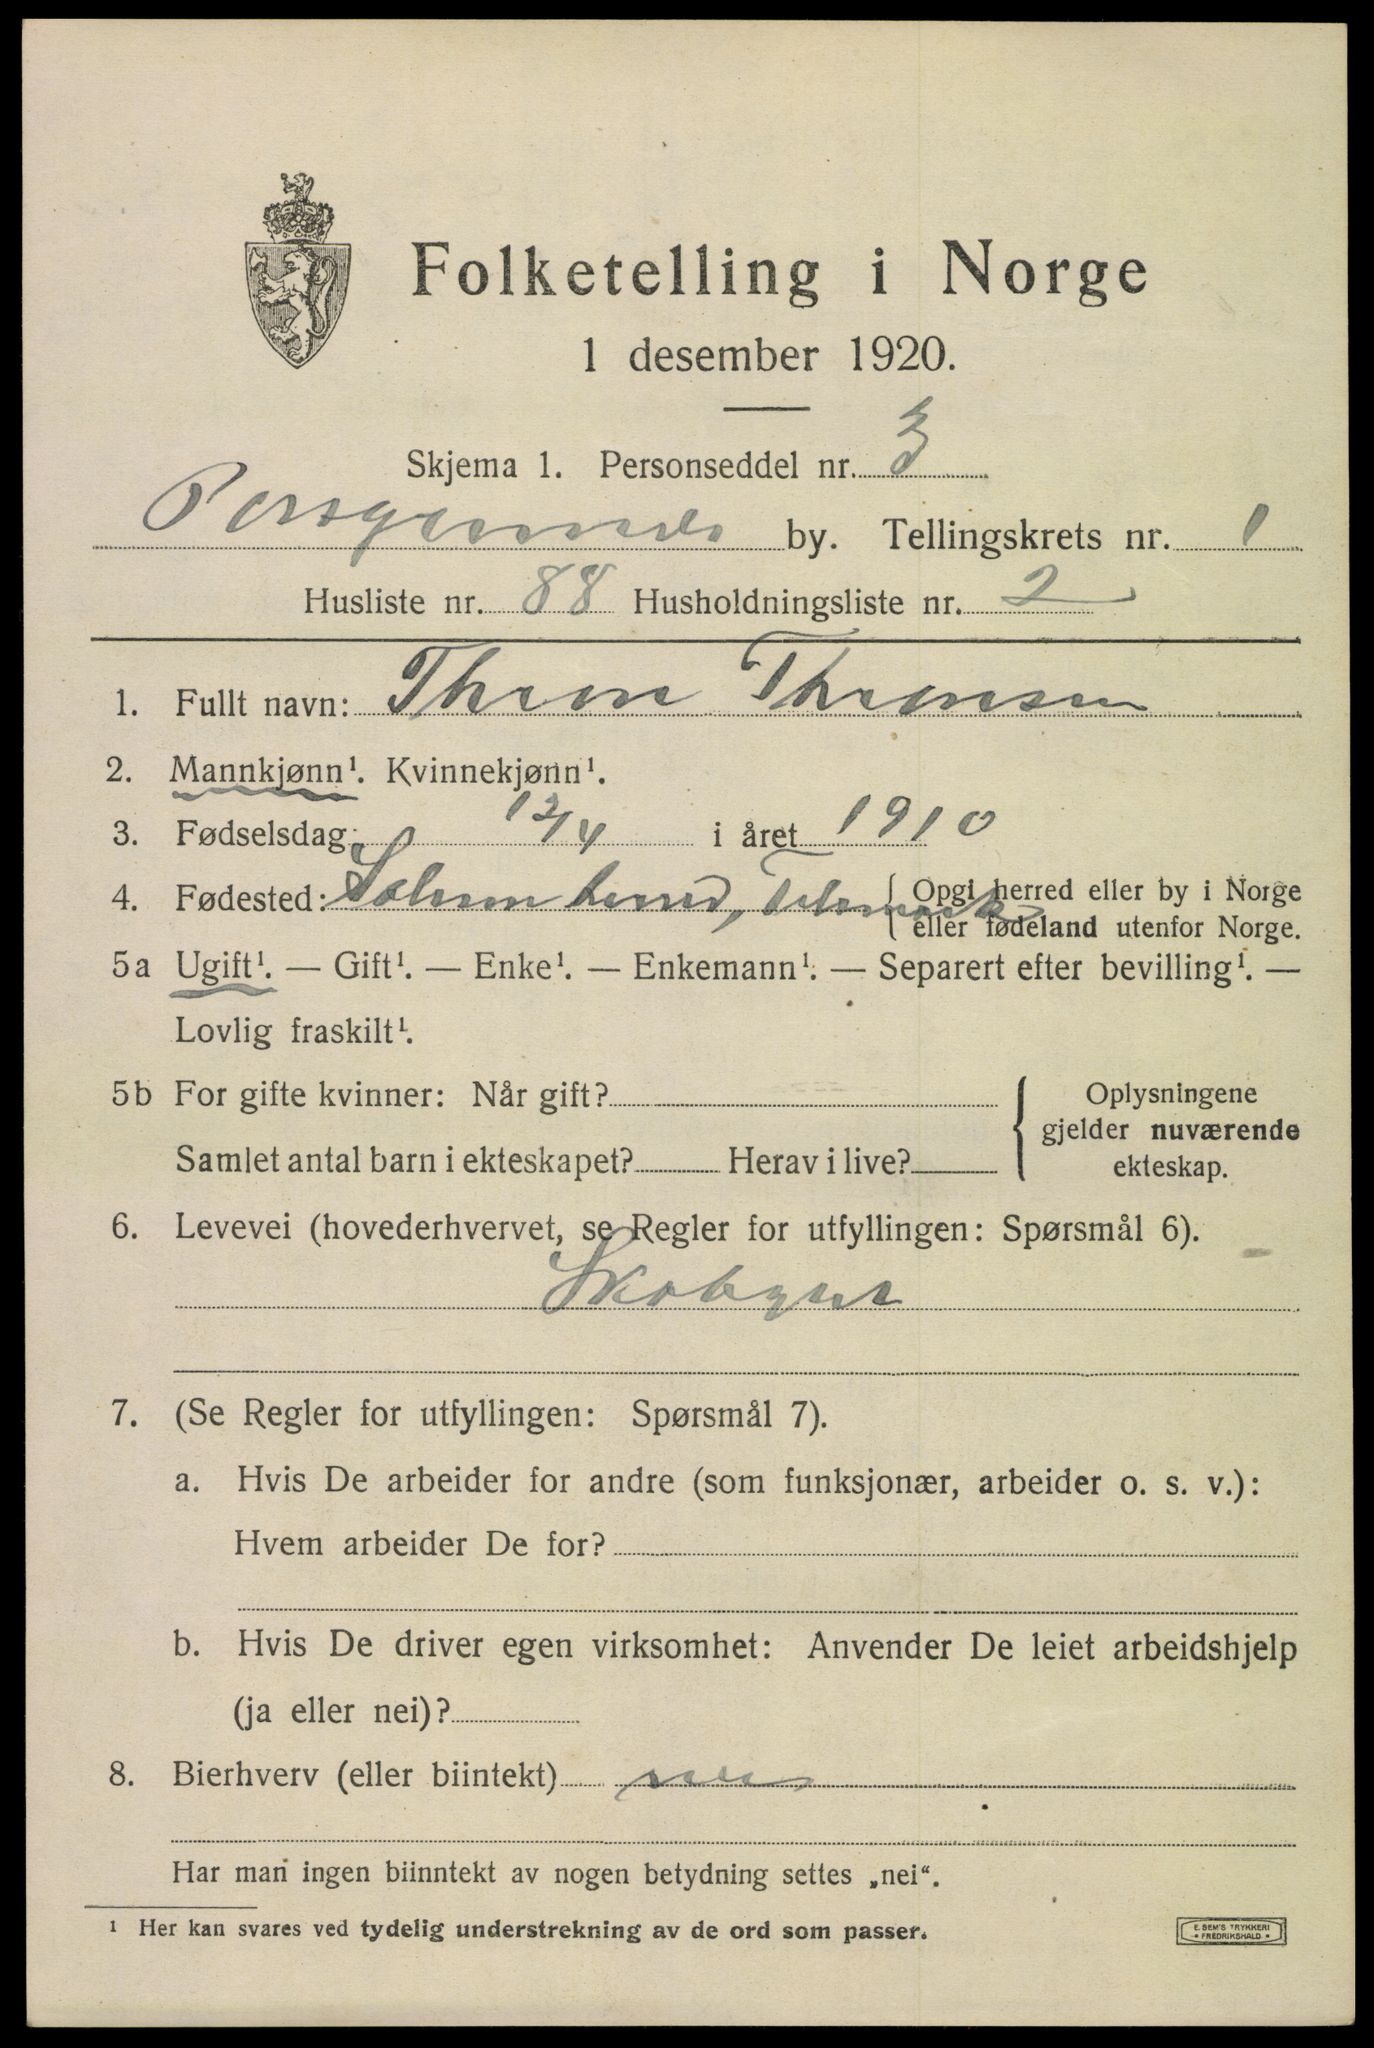 Folketelling i Norge
1 desember 1920.
Skjema 1. Personseddel nr. 3
Porsgrunds by. Tellingskrets nr. 1
Husliste nr. 88 Husholdningsliste nr. 2
1. Fullt navn: Thron Thronsen
2. Mannkjønn¹. Kvinnekjønn¹.
3. Fødselsdag: 12/4 i året 1910
4. Fødested: Solum herred, Telemark { Opgi herred eller by i Norge
eller fødeland utenfor Norge.
5a Ugift¹. — Gift¹. — Enke¹. — Enkemann¹. — Separert efter bevilling¹. —
Lovlig fraskilt¹.
5b For gifte kvinner: Når gift? { Oplysningene
gjelder nuværende
Samlet antal barn i ekteskapet? Herav i live? ekteskap.
6. Levevei (hovederhvervet, se Regler for utfyllingen: Spørsmål 6).
Skolegut
7. (Se Regler for utfyllingen: Spørsmål 7).
a. Hvis De arbeider for andre (som funksjonær, arbeider o. s. v.):
Hvem arbeider De for?
b. Hvis De driver egen virksomhet: Anvender De leiet arbeidshjelp
(ja eller nei)?
8. Bierhverv (eller biintekt) nei
Har man ingen biinntekt av nogen betydning settes „nei“.
¹ Her kan svares ved tydelig understrekning av de ord som passer.
E. SEM'S TRYKKERI
• FREDRIKSHALD •